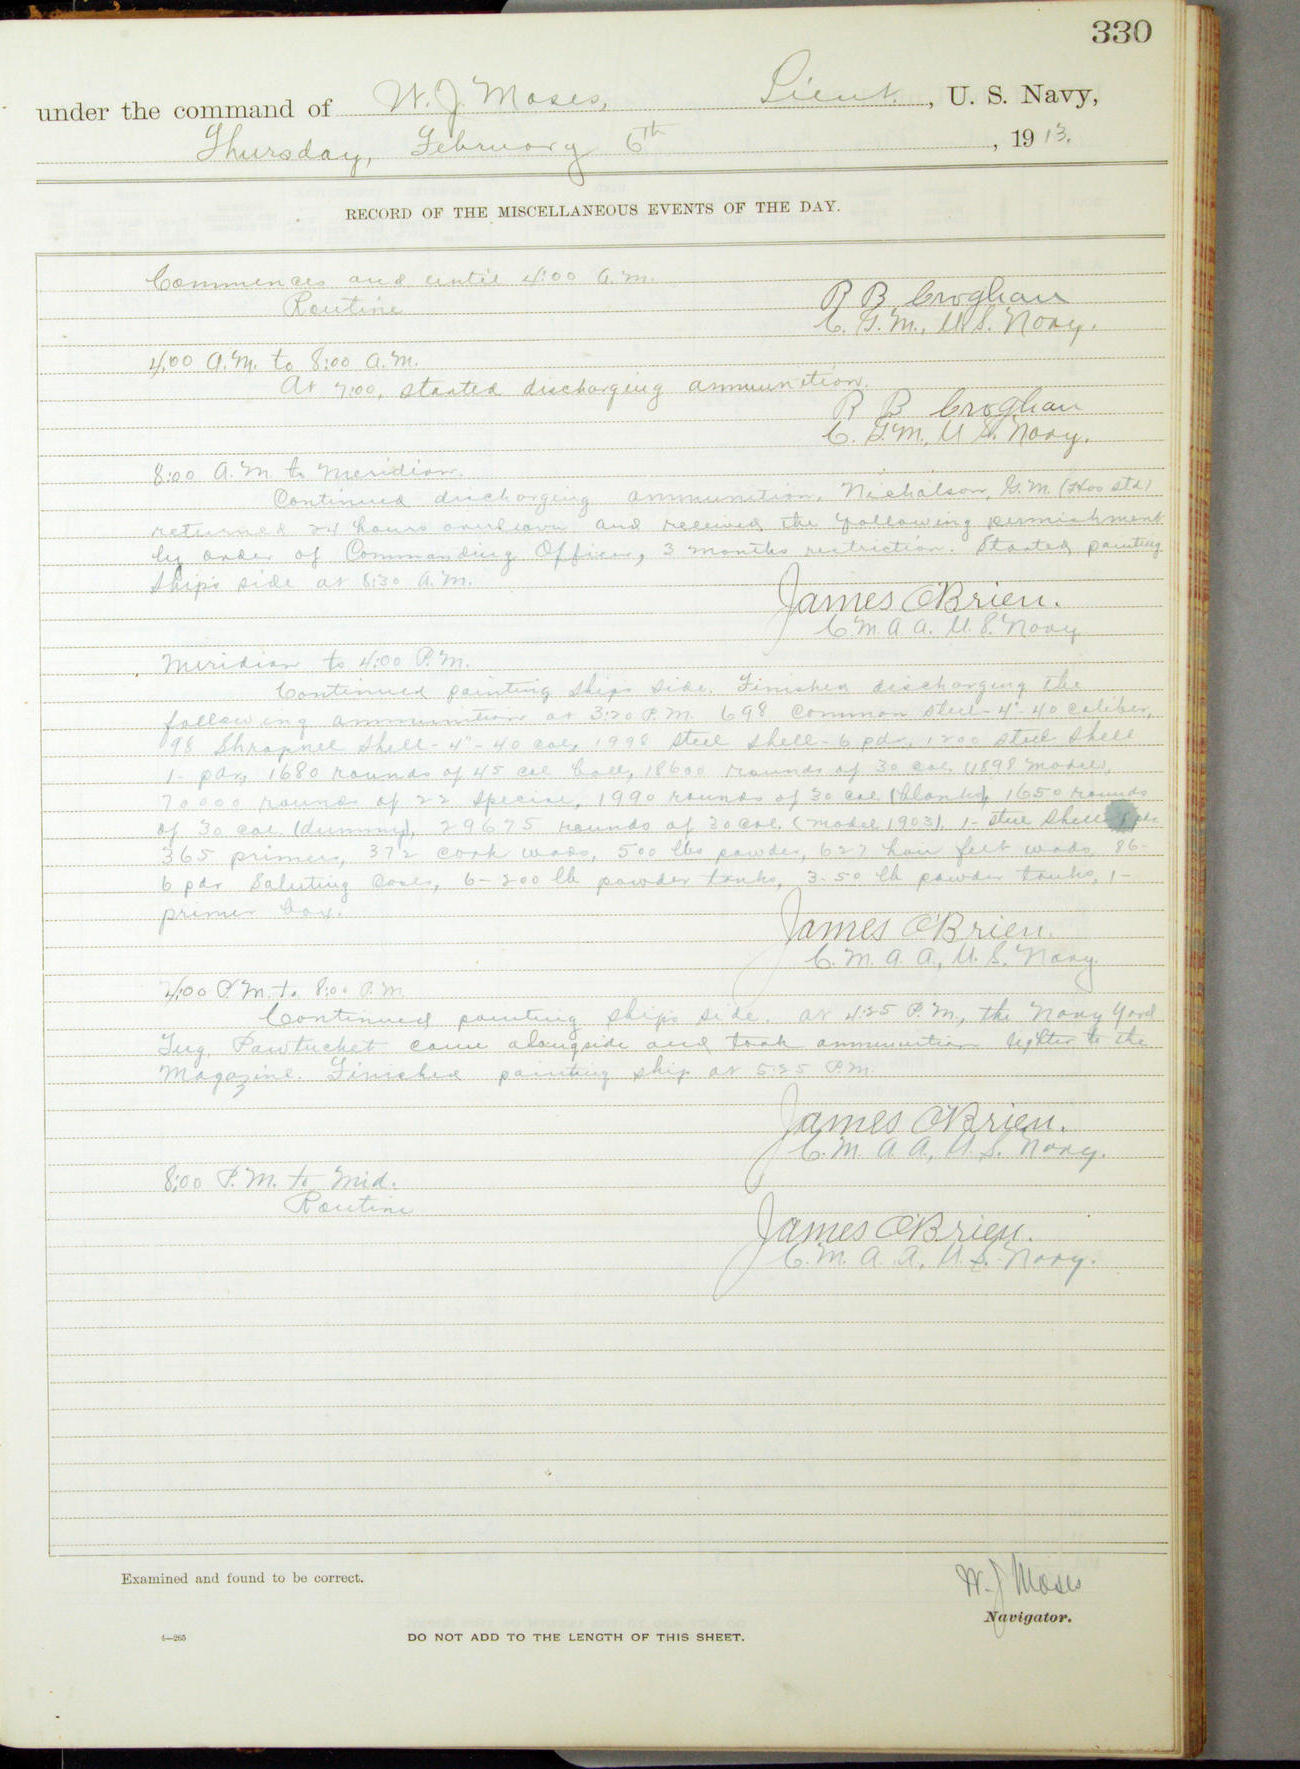 330
under the command of W. J. Moses, Lieut., U. S. Navy,
Thursday, February 6th, 1913.
RECORD OF THE MISCELLANEOUS EVENTS OF THE DAY.
Commences and until 4:00 A.M.
Routine
R B Croghan
C. G. M., U.S. Navy.
4:00 A.M. to 8:00 A.M.
At 7:00, started discharging ammunition.
R B Croghan
C. G. M., U S. Navy.
8:00 A.M. to Meridian.
Continued discharging ammunition. Nicholson, G.M. (Hos Std)
returned 24 hours overleave and received the following punishment
by order of Commanding Officer, 3 months restriction. Started painting
ship's side at 8:30 A.M.
James O'Brien.
C. M. A A. U. S. Navy
Meridian to 4:00 P.M.
Continued painting ships side. Finished discharging the
following ammunition at 3:20 P.M. 698 common steel - 4" - 40 caliber,
98 Shrapnel Shell - 4" - 40 cal, 1998 steel shell - 6 pdr, 1200 steel shell
1- pdr, 1680 rounds of 45 cal ball, 18600 rounds of 30 cal (1898 model),
70000 rounds of 22 special, 1990 rounds of 30 cal (blanks), 1650 rounds
of 30 cal. (dummy), 29675 rounds of 30 cal. (Model 1903), 1- steel shell
365 primers, 372 cork wads, 500 lbs powder, 627 hair felt wads, 86-
6 pdr Saluting Cases, 6 - 200 lb powder tanks, 3- 50 lb powder tanks, 1-
primer box.
James O'Brien.
C. M. A. A., U. S. Navy.
4:00 P.M. to 8:00 P.M.
Continued painting ships side. At 4:25 P.M., the Navy Yard
Tug, Pawtucket came alongside and took ammunition lighter to the
Magazine. Finished painting ship at 5:25 P.M.
James O'Brien.
C. M. A A., U. S. Navy.
8:00 P.M. to Mid.
Routine
James O'Brien.
C. M. A. A., U. S. Navy.
Examined and found to be correct.
W. J Moses
Navigator.
4—265
DO NOT ADD TO THE LENGTH OF THIS SHEET.